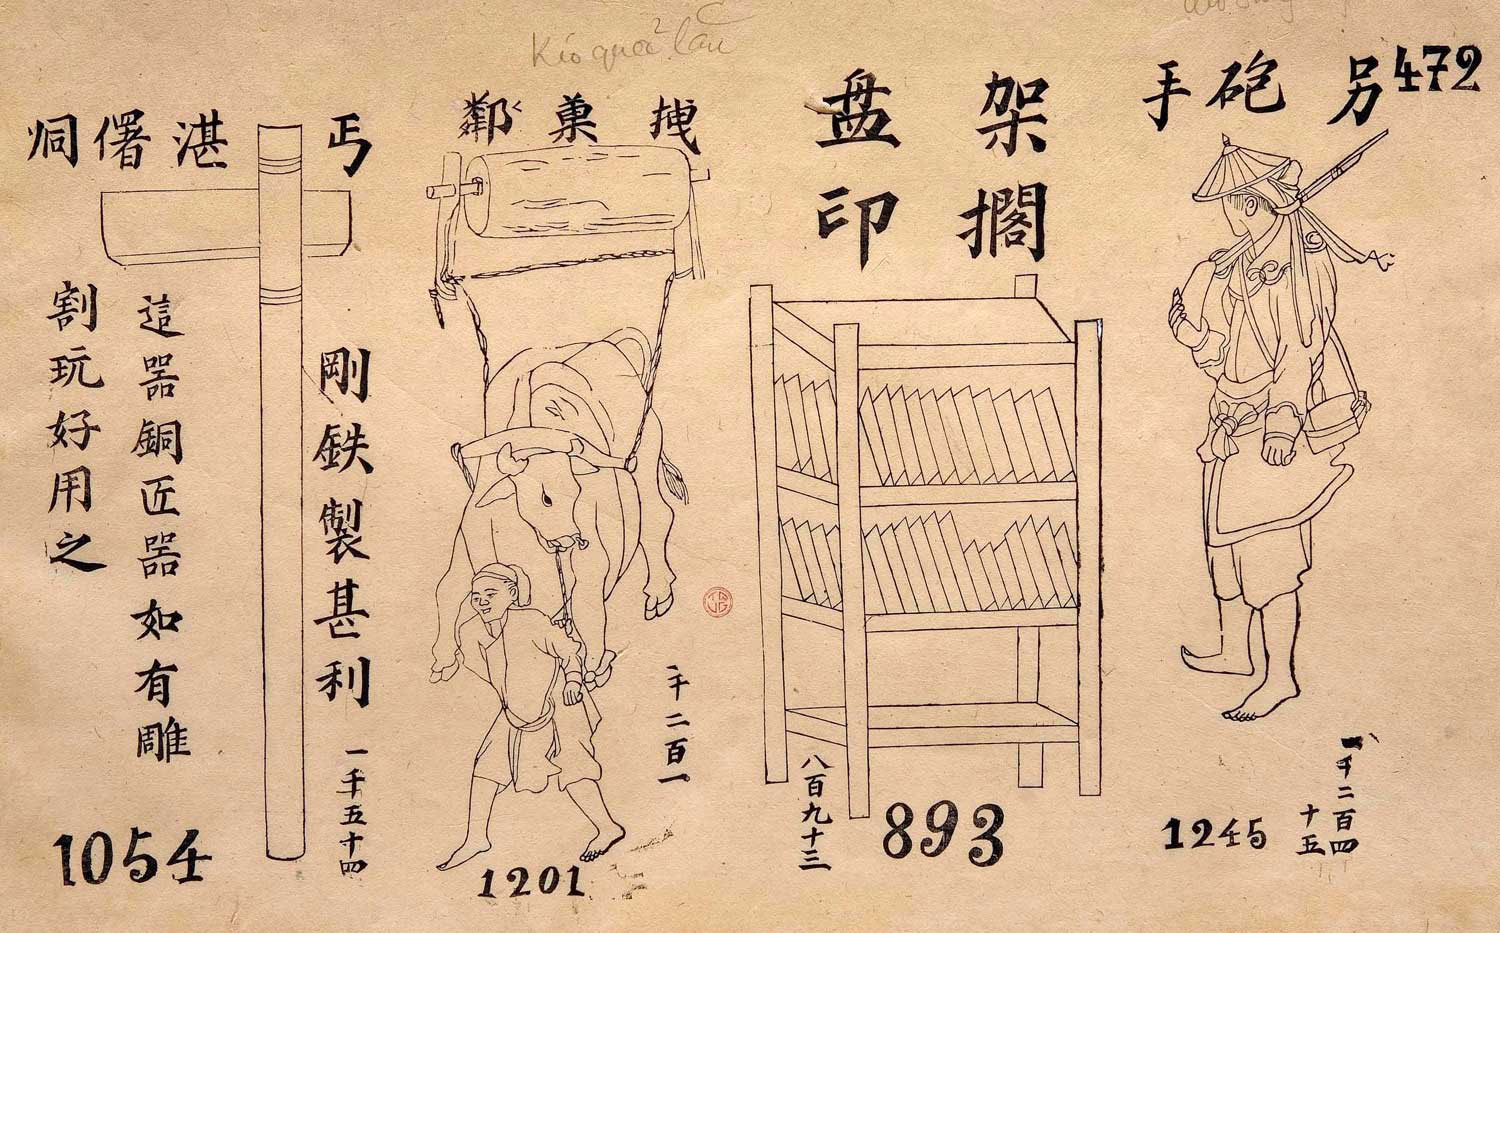 472
另 砲 手
架 盘
搁 印
Kéo quả lăn
拽 菓 鄰
丐 湛 㬿 烔
剛鉄製甚利
這器銅匠器如有雕
割玩好用之
一千五十四
1054
一千二百一
1201
八百九十三
893
一千二百四
十五
1245